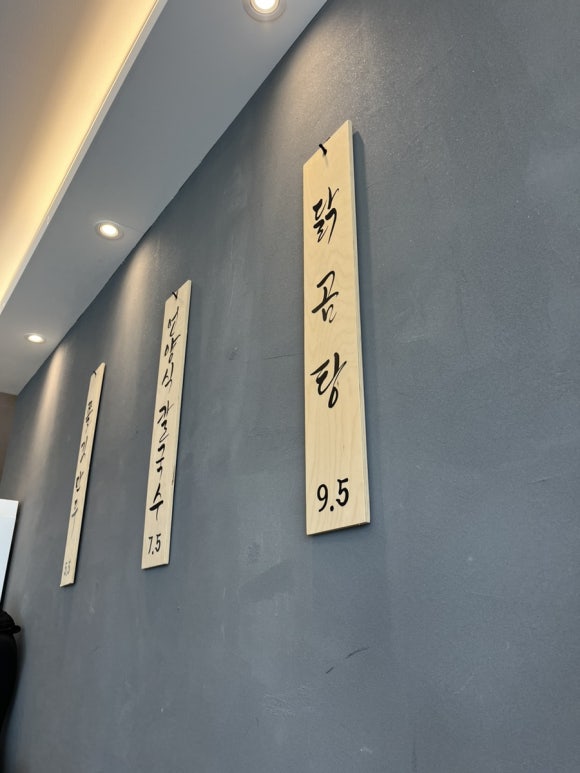 닭곰탕
9.5
언양식 칼국수
7.5